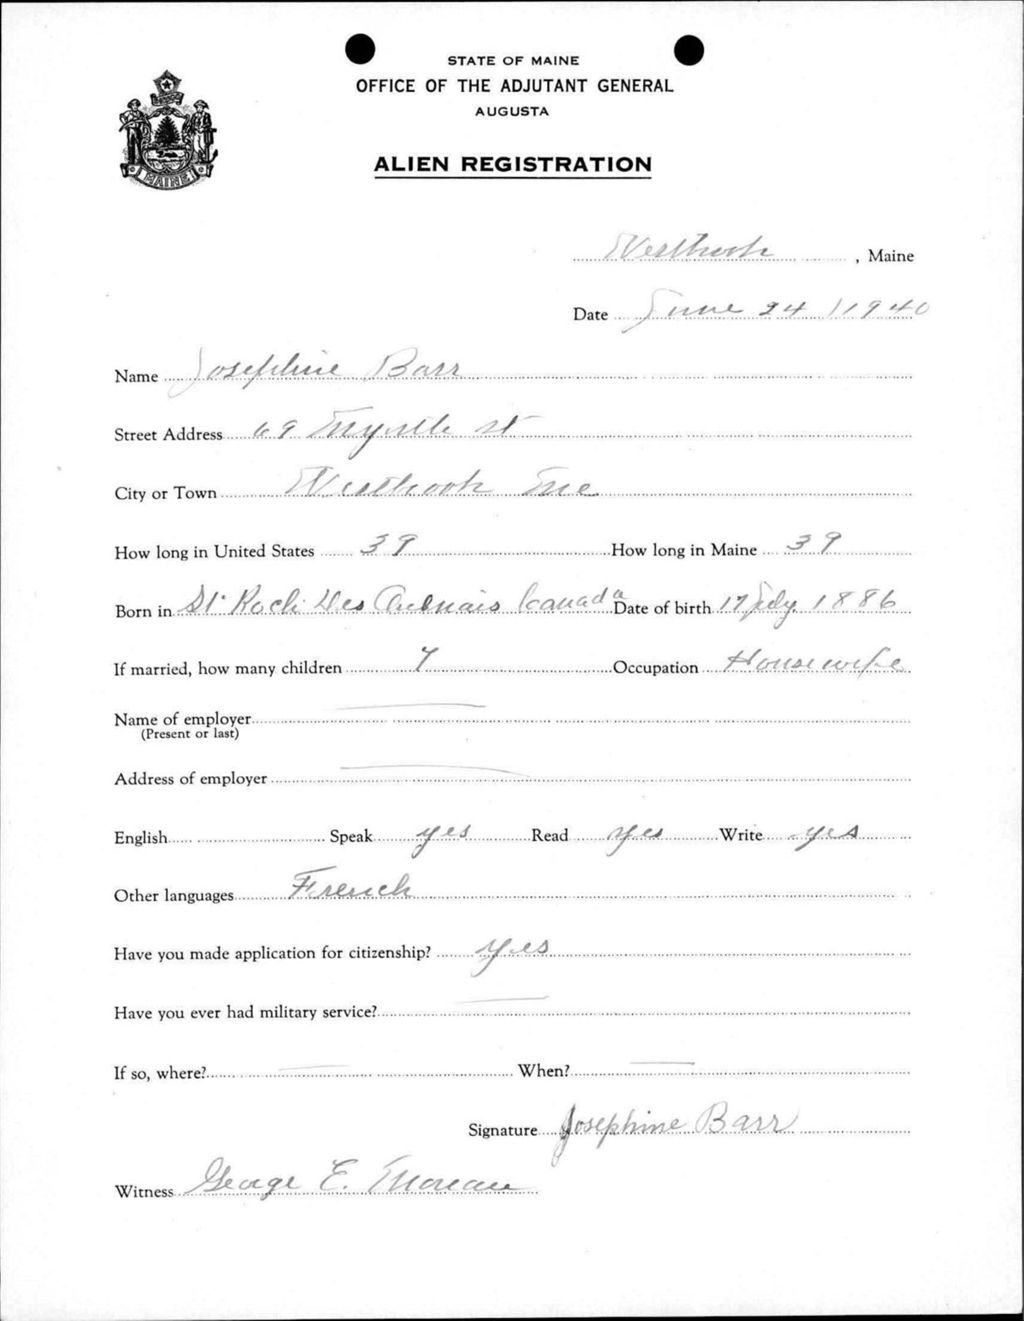 STATE OF MAINE
OFFICE OF THE ADJUTANT GENERAL
AUGUSTA
MAINE
ALIEN REGISTRATION
Westbrook, Maine
Date June 24, 1940
Name Josephine Barr
Street Address 69 Myrtle St
City or Town Westbrook Me
How long in United States 39 How long in Maine 39
Born in St. Roch Des Aulnais Canada Date of birth 17 July 1886
If married, how many children 7 Occupation Housewife
Name of employer
(Present or last)
Address of employer
English Speak yes Read yes Write yes
Other languages French
Have you made application for citizenship? yes
Have you ever had military service?
If so, where? When?
Signature Josephine Barr
Witness George E. Moreau